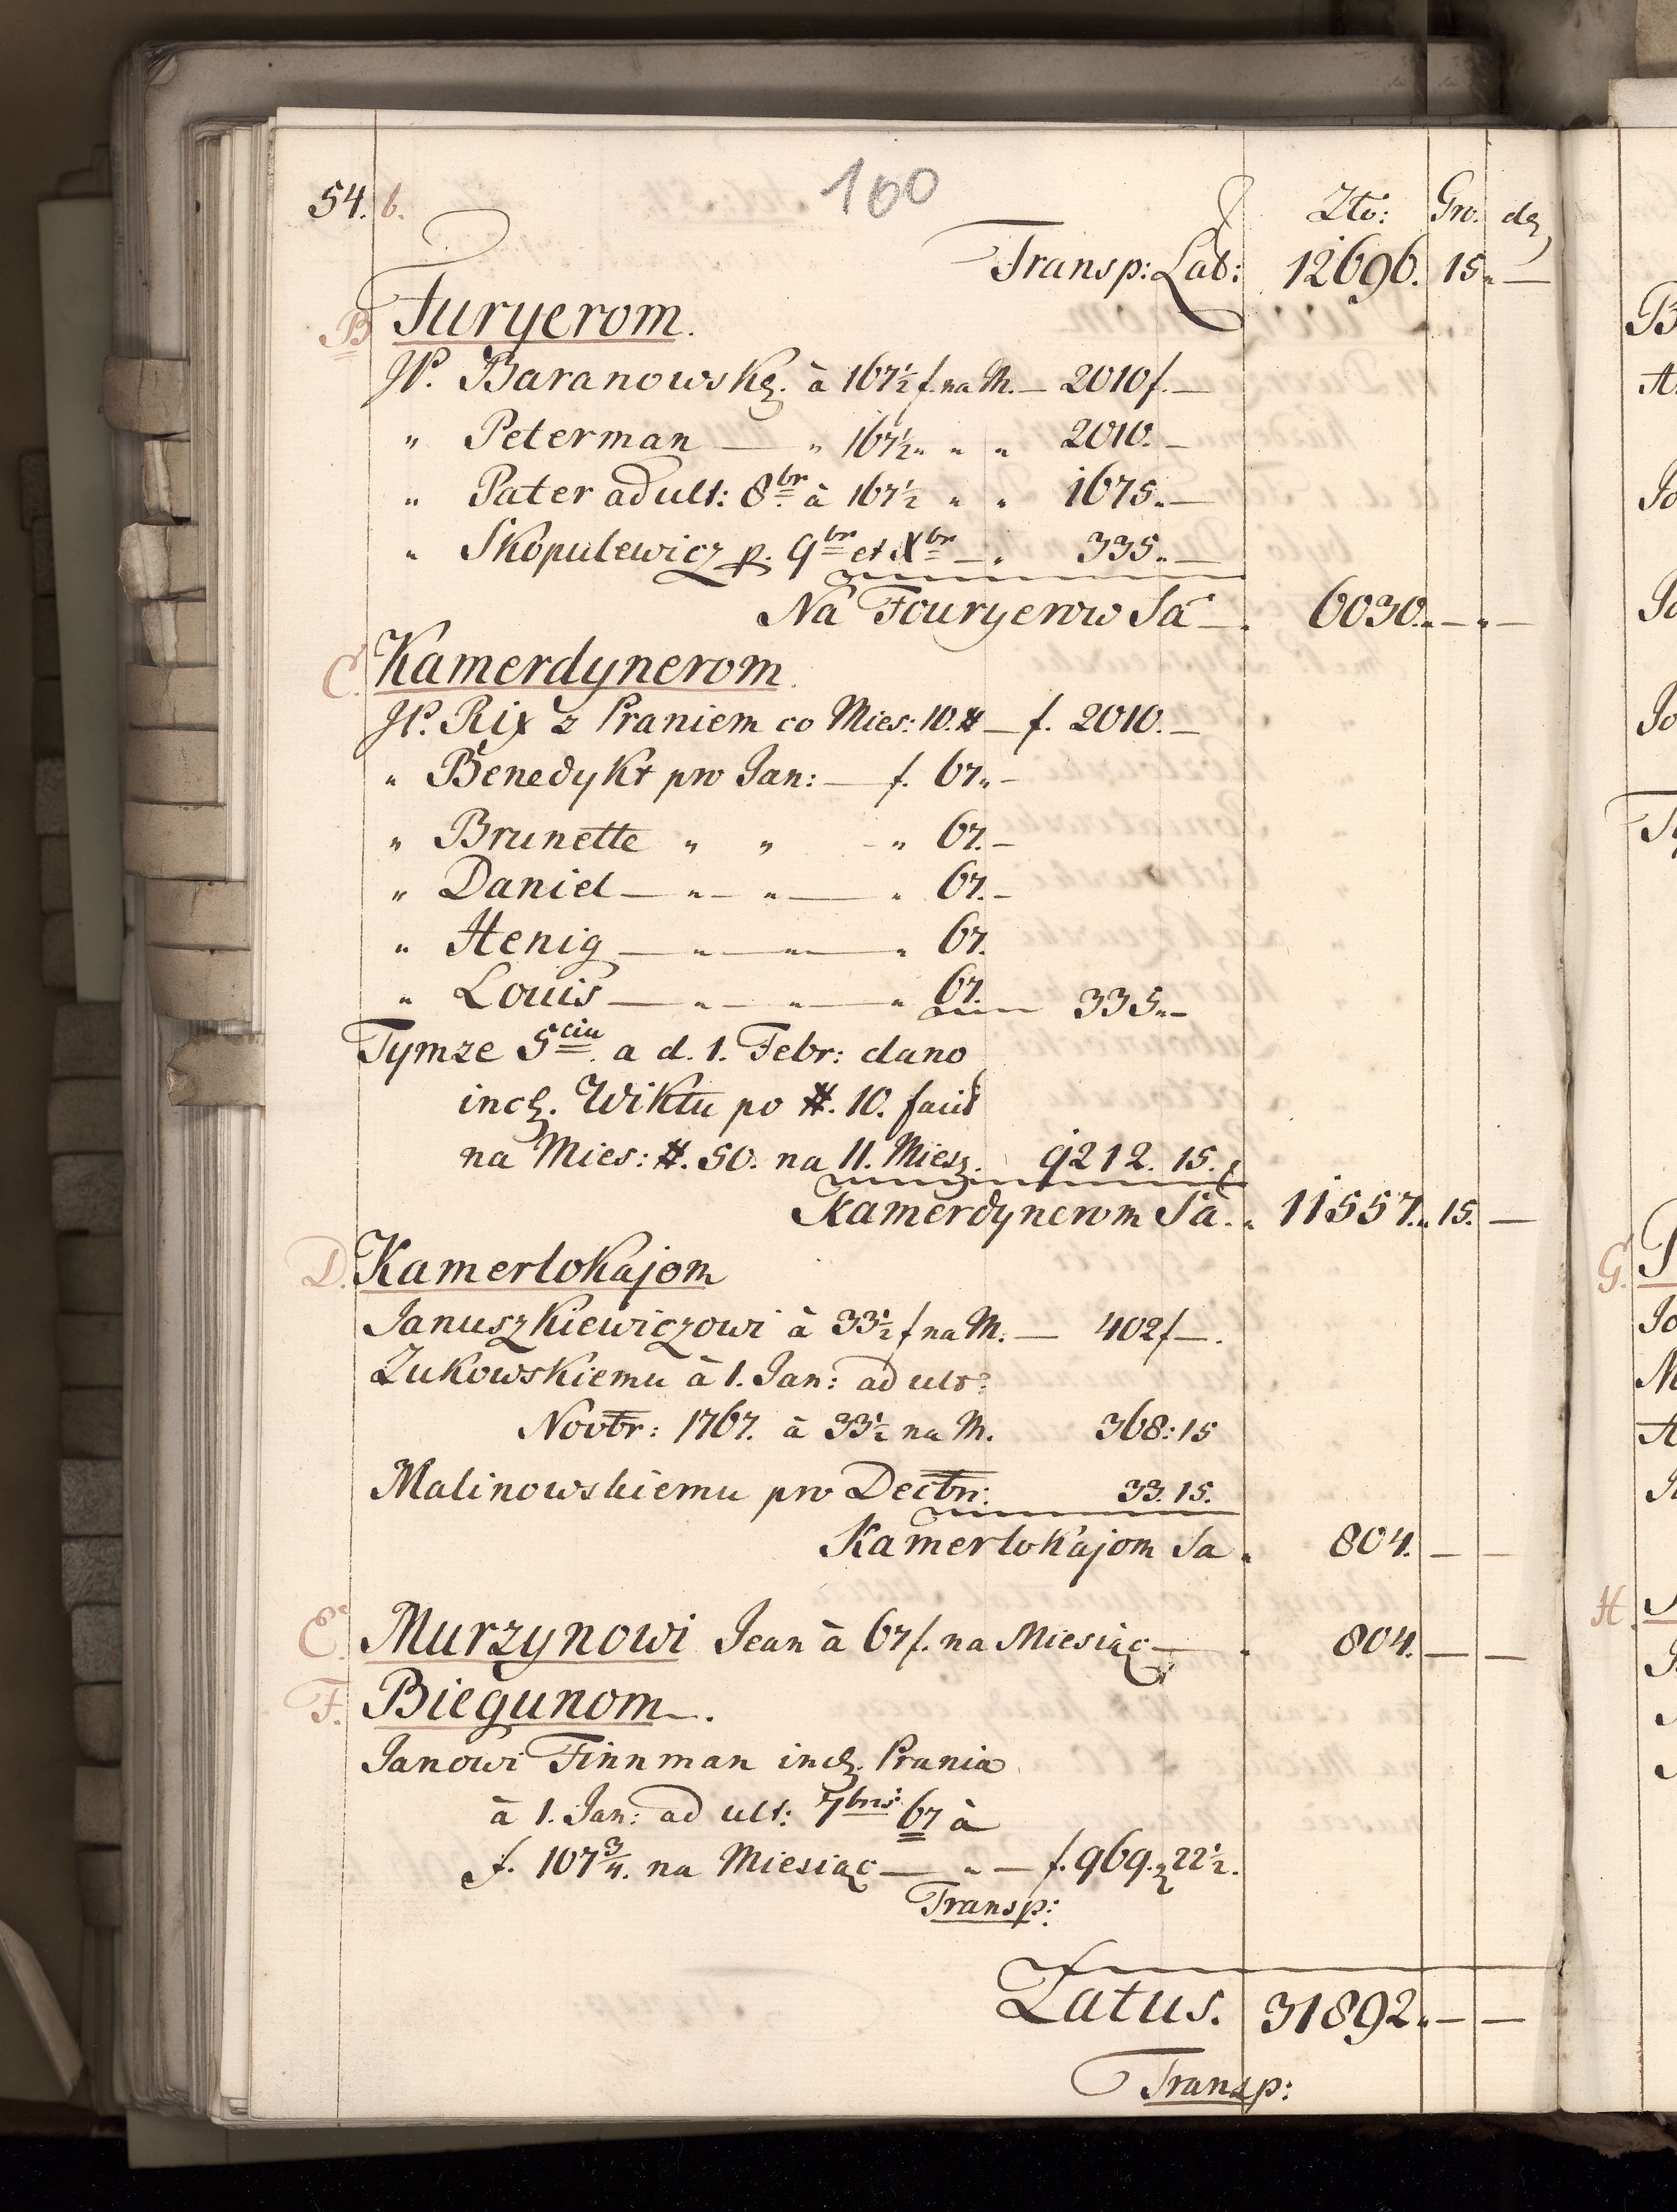 100
54. b.
Zło: Gro. den
Transp: Lat: 12696. 15. —
B Furyerom.
JP. Baranowsky. à 167½ f. na M. — 2010 f. —
" Peterman — " 167½ " " " 2010. —
" Pater ad ult: 8br à 167½ " " 1675. —
" Skopulewicz p. 9br et Xbr — " 335. —
Na Fouryerow Sa — 6030. — —
C. Kamerdynerom.
JP. Rix z Praniem co Mies: 10. # — f. 2010. —
" Benedykt pro Jan: — f. 67. —
" Brunette " " — " 67. —
" Daniel — " — " — " 67. —
" Henig — " — " — " 67.
" Louis — " — " — " 67. 335. —
Tymze 5ciu a d. 1. Febr: dano
incl. Wiktu po #. 10. facit
na Mies: #. 50. na 11. Miesz. 9212. 15.
Kamerdynerom Sa. 11557. 15. —
D. Kamerlokajom
Januszkiewiczowi à 33½ f na M. — 402 f —.
Zukowskiemu à 1. Jan: ad ult:
Novbr: 1767. à 33½ na M. 368: 15
Malinowskiemu pro Decbr: 33. 15.
Kamerlokajom Sa. 804. — —
E. Murzynowi Jean à 67 f. na Miesiąc — 804. — —
F. Biegunom —.
Janowi Finnman incl. Prania
à 1. Jan: ad ult: 7bris 67 à
f. 107¾. na Miesiąc — " — f. 969. 22½.
Transp:
Latus. 31892. — —
Transp:
B
G.
H.